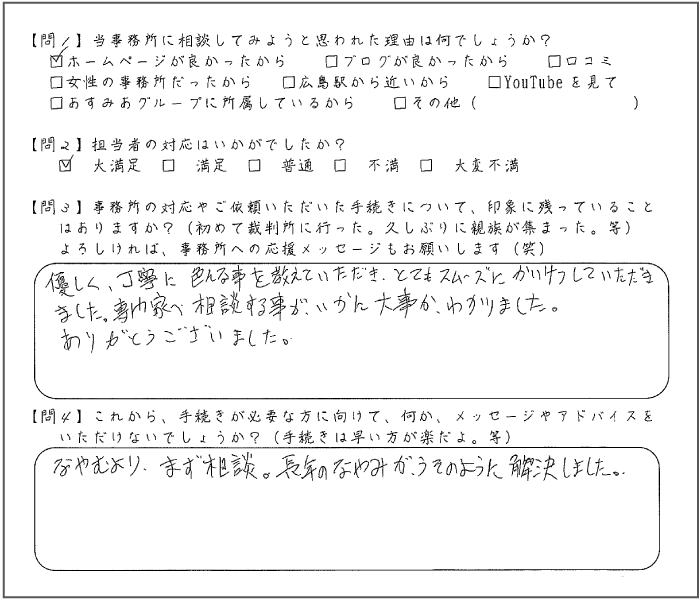 【問1】当事務所に相談してみようと思われた理由は何でしょうか？
☑ホームページが良かったから □ブログが良かったから □口コミ
□女性の事務所だったから □広島駅から近いから □YouTubeを見て
□あすみあグループに所属しているから □その他（ ）
【問2】担当者の対応はいかがでしたか？
☑ 大満足 □ 満足 □ 普通 □ 不満 □ 大変不満
【問3】事務所の対応やご依頼いただいた手続きについて、印象に残っていること
はありますか？（初めて裁判所に行った。久しぶりに親族が集まった。等）
よろしければ、事務所への応援メッセージもお願いします（笑）
優しく、丁寧に 色んな事を教えていただき、とてもスムーズに かいけつしていただき
ました。専門家へ 相談する事が、いかに 大事か、わかりました。
ありがとうございました。
【問4】これから、手続きが必要な方に向けて、何か、メッセージやアドバイスを
いただけないでしょうか？（手続きは早い方が楽だよ。等）
なやむより、まず相談。長年のなやみが、うそのように 解決しました。